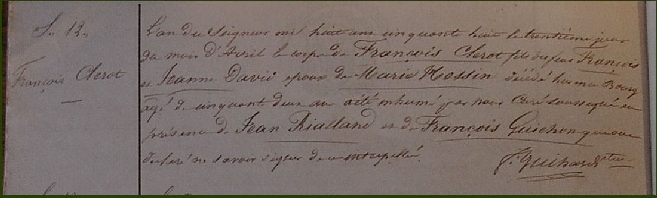 S. 12.
François Clerot
L'an du Seigneur mil huit cent cinquante huit le trentième jour
du mois d'Avril le corps de François Clerot fils de feu François
et Jeanne David époux de Marie Hossin décédé hier au Bourg
agé de cinquante deux ans a été inhumé par nous Curé soussigné en
présence de Jean Rialland et de François Guichon qui ont
déclaré ne savoir signer de ce interpellés.
J. Guihard